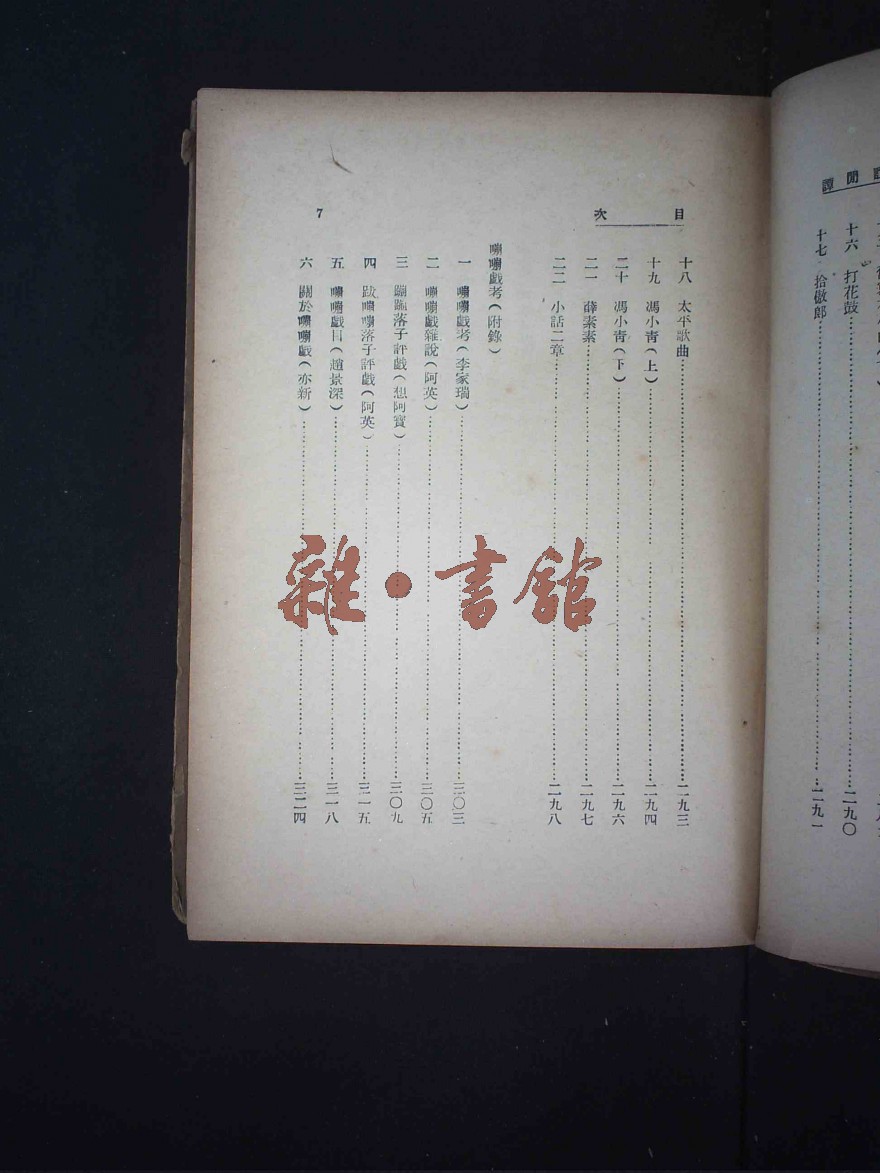 閒譚
十六 打花鼓……二九〇
十七 拾郎……二九一
目次
十八 太平歌曲……二九三
十九 馮小靑(上)……二九四
二十 馮小靑(下)……二九六
二一 薛素素……二九七
二二 小話二章……二九八
嘣嘣戲考(附錄)
一 嘣嘣戲考(李家瑞)……三〇三
二 嘣嘣戲雜說(阿英)……三〇五
三 蹦蹦落子評戲(想阿寶)……三〇九
四 跋嘣嘣落子評戲(阿英)……三一五
五 嘣嘣戲目(趙景深)……三一八
六 關於嘣嘣戲(亦新)……三二四
7
雜·書館